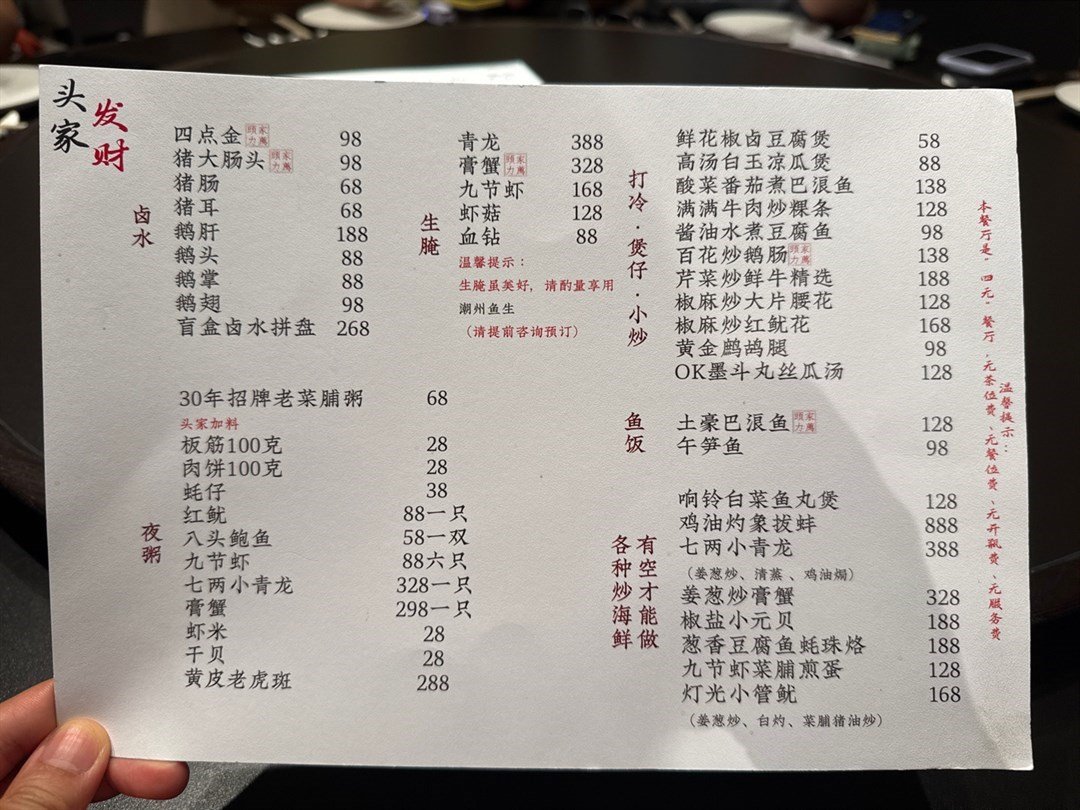 头家
发财
卤水
四点金 頭家力薦 98
猪大肠头 頭家力薦 98
猪肠 68
猪耳 68
鹅肝 188
鹅头 88
鹅掌 88
鹅翅 98
盲盒卤水拼盘 268
生腌
青龙 388
膏蟹 頭家力薦 328
九节虾 168
虾菇 128
血钻 88
温馨提示：
生腌虽美好，请酌量享用
潮州鱼生
（请提前咨询预订）
打冷·煲仔·小炒
鲜花椒卤豆腐煲 58
高汤白玉凉瓜煲 88
酸菜番茄煮巴浪鱼 138
满满牛肉炒粿条 128
酱油水煮豆腐鱼 98
百花炒鹅肠 頭家力薦 138
芹菜炒鲜牛精选 188
椒麻炒大片腰花 128
椒麻炒红鱿花 168
黄金鹧鸪腿 98
OK墨斗丸丝瓜汤 128
夜粥
30年招牌老菜脯粥 68
头家加料
板筋100克 28
肉饼100克 28
蚝仔 38
红鱿 88一只
八头鲍鱼 58一双
九节虾 88六只
七两小青龙 328一只
膏蟹 298一只
虾米 28
干贝 28
黄皮老虎斑 288
鱼饭
土豪巴浪鱼 頭家力薦 128
午笋鱼 98
有空才能做
各种炒海鲜
响铃白菜鱼丸煲 128
鸡油灼象拔蚌 888
七两小青龙 388
（姜葱炒、清蒸、鸡油焗）
姜葱炒膏蟹 328
椒盐小元贝 188
葱香豆腐鱼蚝珠烙 188
九节虾菜脯煎蛋 128
灯光小管鱿 168
（姜葱炒、白灼、菜脯猪油炒）
温馨提示：
本餐厅是“四无”餐厅，无茶位费、无餐位费、无开瓶费、无服务费